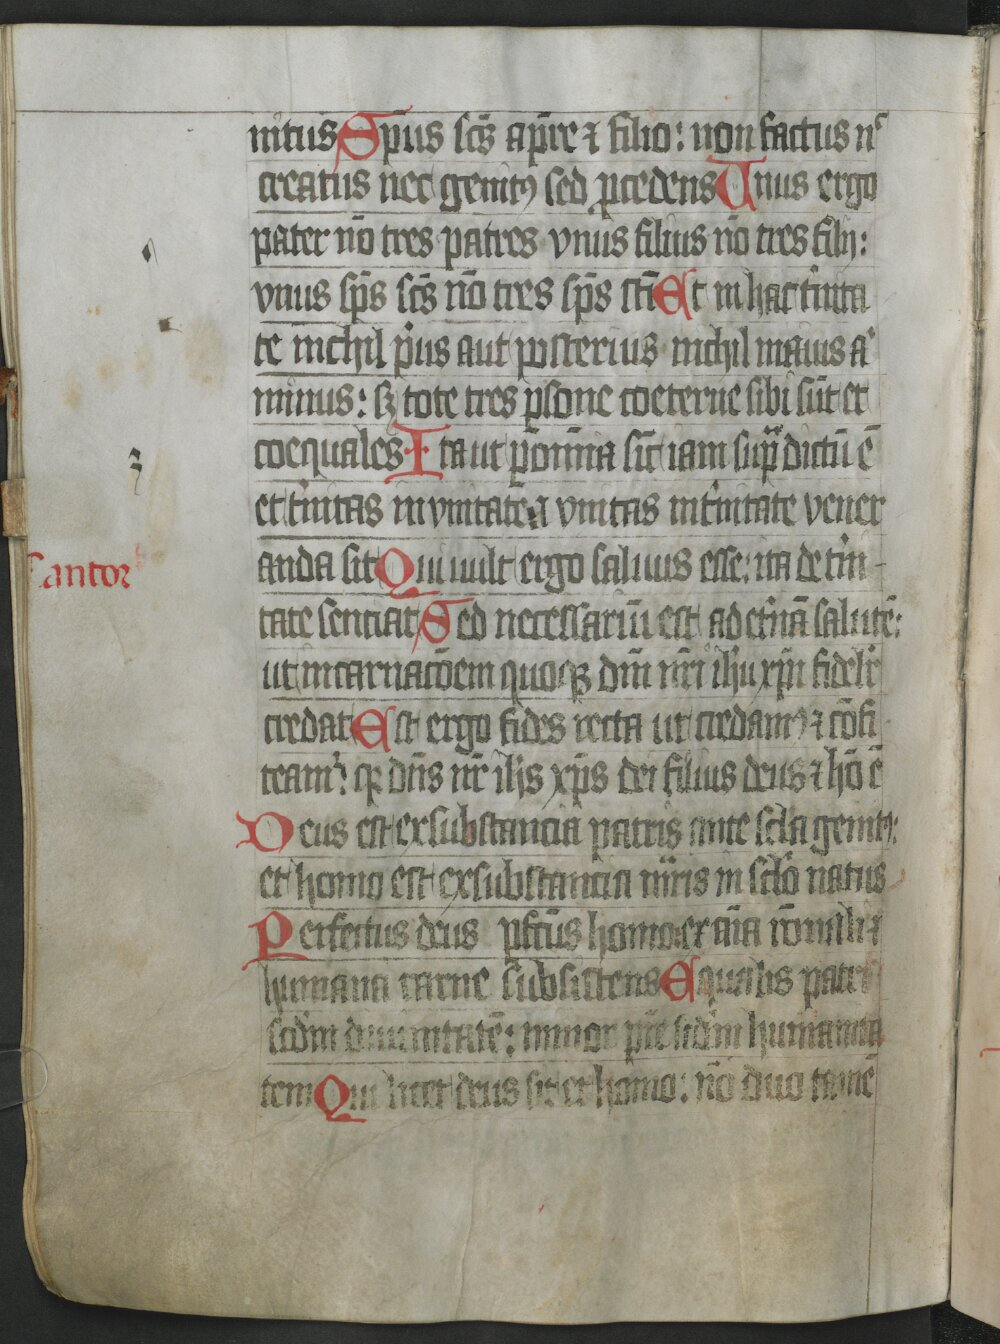 nitus Sp̄us sc̄s a pr̄e ⁊ filio: non factus nͨ
creatus nec genitꝰ sed ꝓcedens Unus ergo
pater nō tres patres vnus filius nō tres filij:
vnus sp̄s sc̄s nō tres sp̄s sc̄i Et in hac t'nita
te nichil p'us aut posterius nichil maius a'
minus: sꝫ tote tres ꝑsone coeterne sibi sūt et
coequales Ita ut ꝑ om̄ia sic̄ iam sup̄ dictū ē
et t'nitas in vnitate ⁊ vnitas in t'nitate vener
anda sit Qui uult ergo saluus esse: ita de t'ni-
tate sentiat Sed necessariū est ad et'nā salutē:
ut incarnacōem quoqꝫ dn̄i nr̄i ih̄u xp̄i fidelr̄
credat Est ergo fides recta ut credamꝰ ⁊ cōfi
teamꝰ: qꝫ dn̄s nr̄ ih̄s xp̄s dei filius deus ⁊ hō ē
Deus est ex substancia patris ante sc̄la genitꝰ:
et homo est ex substancia mr̄is in sc̄lo natus
Perfectus deus ꝑfcūs homo: ex aīa rōnali ⁊
humana carne subsistens Equalis patri
scdm̄ diuinitatē: minor pr̄e scdm̄ humanita
tem Qui licet deus sit et homo: nō duo tamē
Cantor